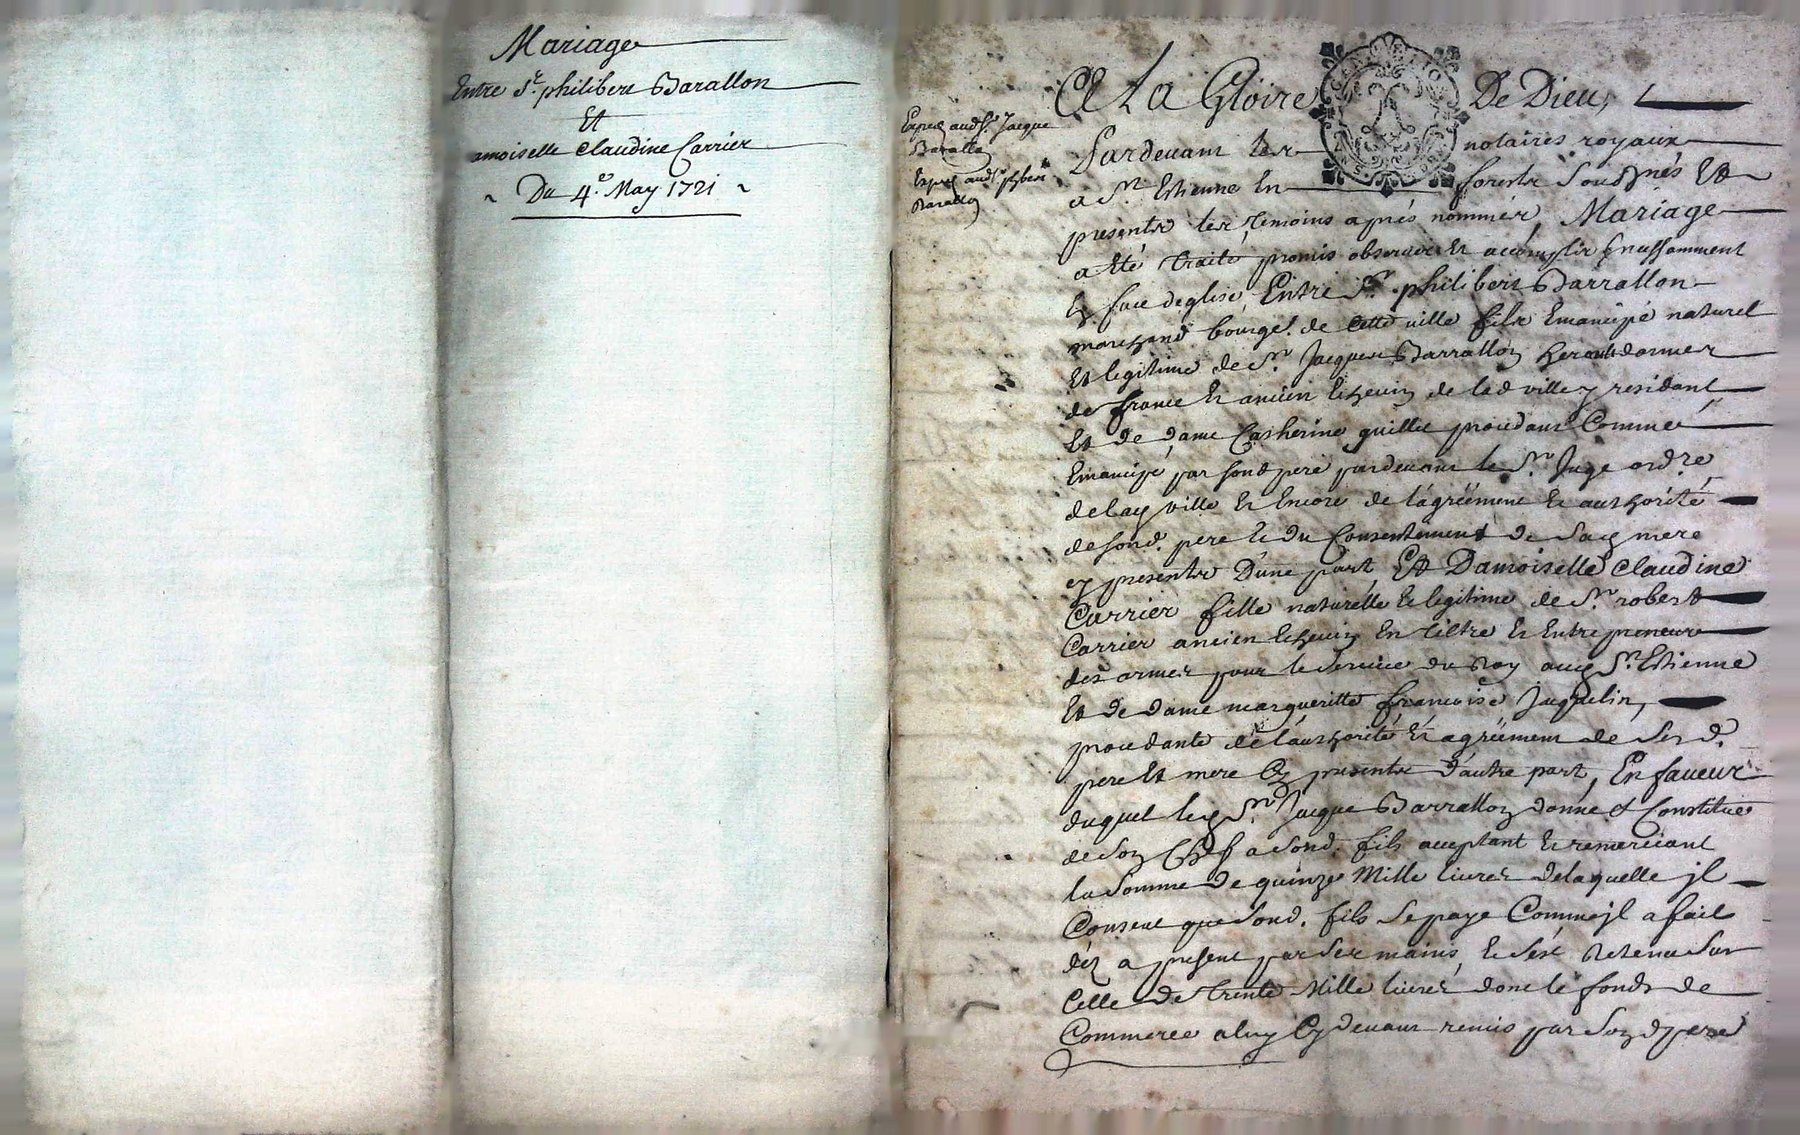 Mariage
Entre Sr. philibert Barallon
Et
amoiselle Claudine Carrier
~ Du 4e. May 1721 ~
A La Gloire De Dieu,
Expeé audSr. Jacque
Baralló
Expeé audSr phybert
Barallō
Pardevant les notaires royaux
a St Estienne En forests Soussignés Et
presents les temoins aprés nommés, Mariage
a eté traité, promis observer et accomplir Incessamment
En face deglise, Entre Sr. philibert Barrallon
marchand bourgs. de Cette ville fils Emancipé naturel
Et legitime de Sr Jacques Barrallon herault darmes
de france Et ancien Echevin de lad ville y residant
Et de dame Catherine guillie procedant Comme
Emancipé par sond pere pardevant le Sr Juge ordre
de lad ville Et Encore de lágréément Et authorité
de sond. pere Et du Consentement de Sad mere
cy presents Dúne part, Et Damoiselle Claudine
Carrier fille naturelle Et legitime de Sr. robert
Carrier ancien Echevin En tiltre Et Entrepreneur
des armes pour le Service du Roy aud St. Estienne
Et de dame margueritte francoise Jacquelin,
procedante de láuthorité Et agréément de Sesd.
pere Et mere Cy presents dáutre part, En faveur
duquel led Sr. Jacque Barrallon donne et Constitue
de Son Chef a Sond. fils acceptant Et remerciant
la Somme de quinze Mille livres de laquelle jl
Consent que Sond. fils Se paye Comme jl a fait
déz a present par Ses mains, Et Sést Retenu Sur
Celle de trente Mille livres dont le fonds de
Commerce a luy Cy devant remis par Son d pere